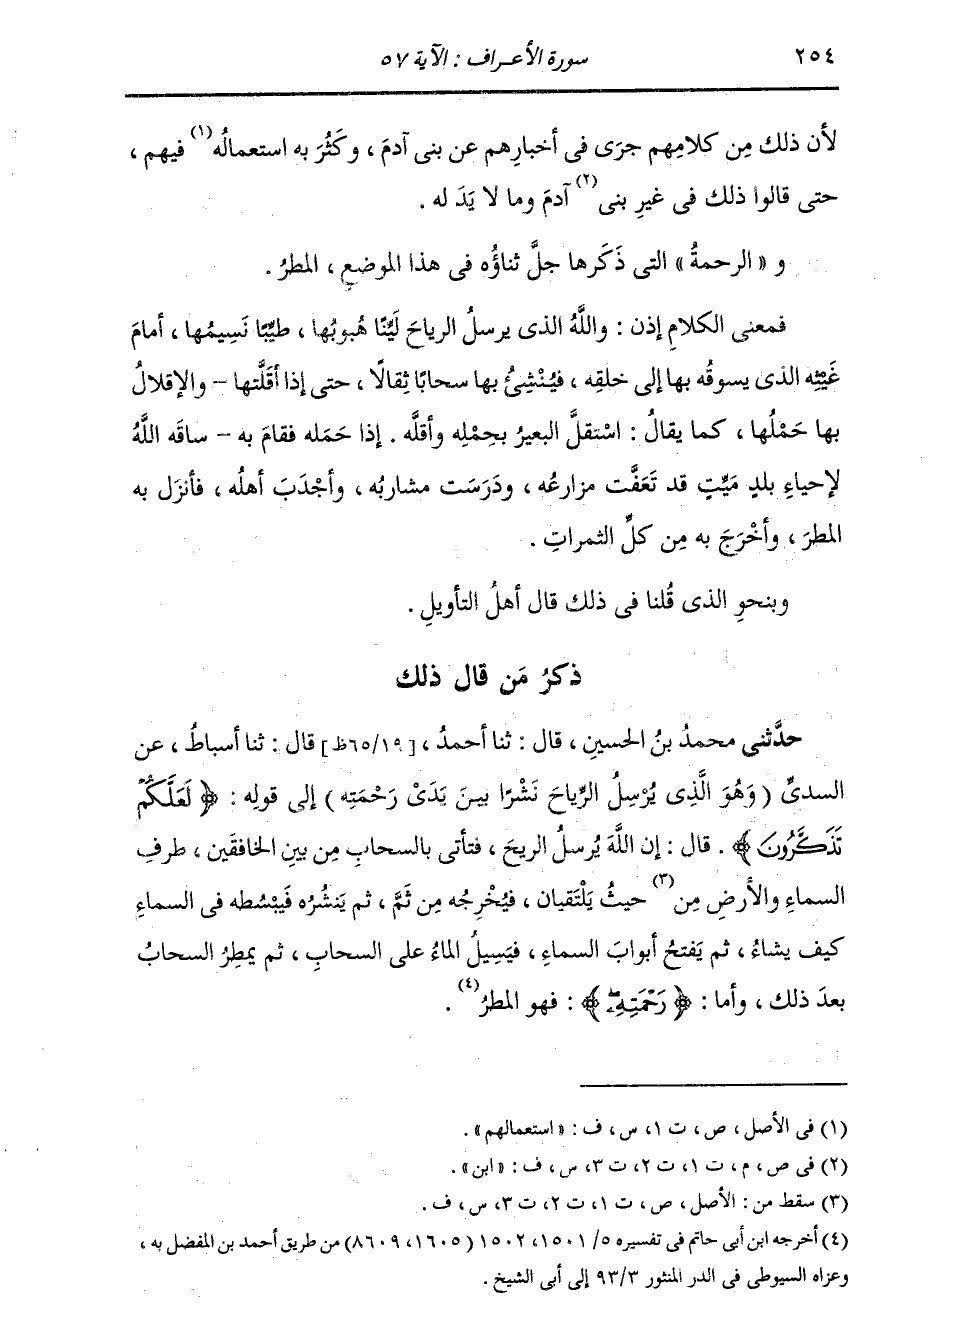 ٢٥٤ سورة الأعراف : الآية ٥٧
لأن ذلك مِن كلامِهم جرَى فى أخبارِهم عن بنى آدمَ ، وكَثُرَ به استعمالُه(١) فيهم ،
حتى قالوا ذلك فى غيرِ بنى(٢) آدمَ وما لا يَدَ له .
و « الرحمةُ » التى ذَكَرها جلَّ ثناؤُه فى هذا الموضعِ ، المطرُ .
فمعنى الكلامِ إذن : واللَّهُ الذى يرسلُ الرياحَ لَيِّنًا هُبوبُها ، طيِّبًا نَسِيمُها ، أمامَ
غَيْثِه الذى يسوقُه بها إلى خلقِه ، فيُنْشِئُ بها سحابًا ثِقالًا ، حتى إذا أقلَّتها – والإقلالُ
بها حَمْلُها ، كما يقالُ : اسْتقلَّ البعيرُ بحِمْلِه وأقلَّه . إذا حَمَله فقامَ به – ساقَه اللَّهُ
لإحياءِ بلدٍ مَيِّتٍ قد تَعَفَّت مزارعُه ، ودَرَسَت مشاربُه ، وأجْدَبَ أهلُه ، فأنزَل به
المطرَ ، وأخْرَجَ به مِن كلِّ الثمراتِ .
وبنحوِ الذى قُلنا فى ذلك قال أهلُ التأويلِ .
ذكرُ مَن قال ذلك
حدَّثنى محمدُ بنُ الحسينِ ، قال : ثنا أحمدُ ، [٦٥/١٩ظ] قال : ثنا أسباطُ ، عن
السدىِّ ( وَهُوَ الَّذِى يُرْسِلُ الرِّياحَ نَشْرًا بينَ يَدَىْ رَحْمَتِه ) إلى قولِه : ﴿ لَعَلَّكُمْ
تَذَكَّرُونَ ﴾ . قال : إن اللَّهَ يُرسلُ الريحَ ، فتأتى بالسحابِ مِن بينِ الخافقَين ، طرفِ
السماءِ والأرضِ مِن(٣) حيثُ يَلْتَقيان ، فيُخْرِجُه مِن ثَمَّ ، ثم يَنشُرُه فيَبْسُطه فى السماءِ
كيف يشاءُ ، ثم يَفتحُ أبوابَ السماءِ ، فيَسِيلُ الماءُ على السحابِ ، ثم يمطِرُ السحابُ
بعدَ ذلك ، وأما : ﴿ رَحْمَتِهِۦ ﴾ : فهو المطرُ(٤) .
(١) فى الأصل ، ص ، ت ١ ، س ، ف : « استعمالهم » .
(٢) فى ص ، م ، ت ١ ، ت ٢ ، ت ٣ ، س ، ف : « ابن » .
(٣) سقط من : الأصل ، ص ، ت ١ ، ت ٢ ، ت ٣ ، س ، ف .
(٤) أخرجه ابن أبى حاتم فى تفسيره ٥/ ١٥٠١، ١٥٠٢ (١٦٠٥، ٨٦٠٩) من طريق أحمد بن المفضل به ،
وعزاه السيوطى فى الدر المنثور ٩٣/٣ إلى أبى الشيخ .